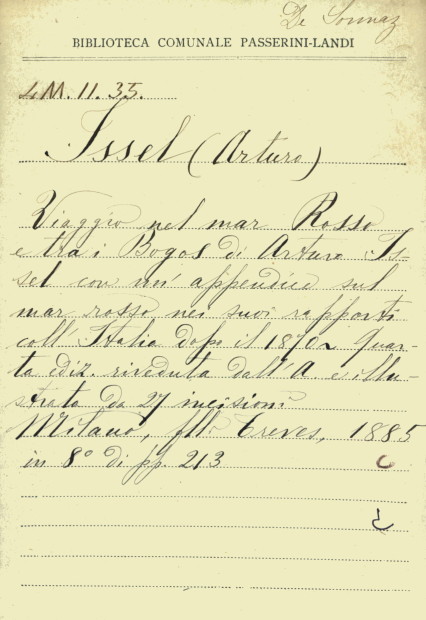 De Sonnaz
BIBLIOTECA COMUNALE PASSERINI-LANDI
4 M. 11. 35.
Issel (Arturo)
Viaggio nel mar Rosso
e tra i Bogos di Arturo Is-
sel con un' appendice sul
mar rosso nei suoi rapporti
coll' Italia dopo il 1870 Quar-
ta ediz. riveduta dall' A. e illu-
strata da 27 incisioni
Milano, flli Treves, 1885
in 8° di pp. 213